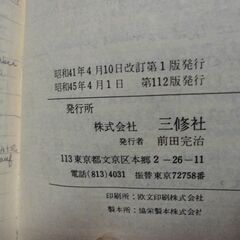 昭和41年4月10日改訂第1版発行
昭和45年4月1日 第112版発行
発行所
株式会社 三修社
発行者 前田完治
113東京都文京区本郷2-26-11
電話(813)4031 振替東京72758番
印刷所：欧文印刷株式会社
製本所：協栄製本株式会社